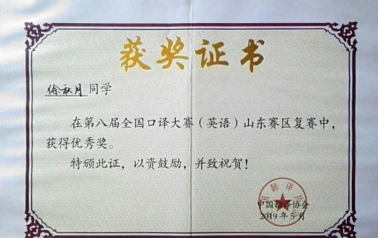 获奖证书
徐秋月同学
在第八届全国口译大赛（英语）山东赛区复赛中，
获得优秀奖。
特颁此证，以资鼓励，并致祝贺！
中国翻译协会
2019年5月